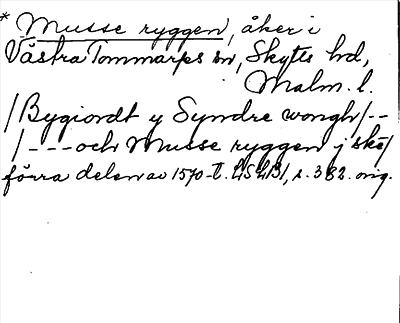 * Musse ryggen, åker i
Västra Tommarps sn, Skytts hd,
Malm. l.
/Bygiordt y Syndre wongh/--
/---och Musse ryggen j skë/
förra delen av 1570-t. LSLB1, s. 382. orig.